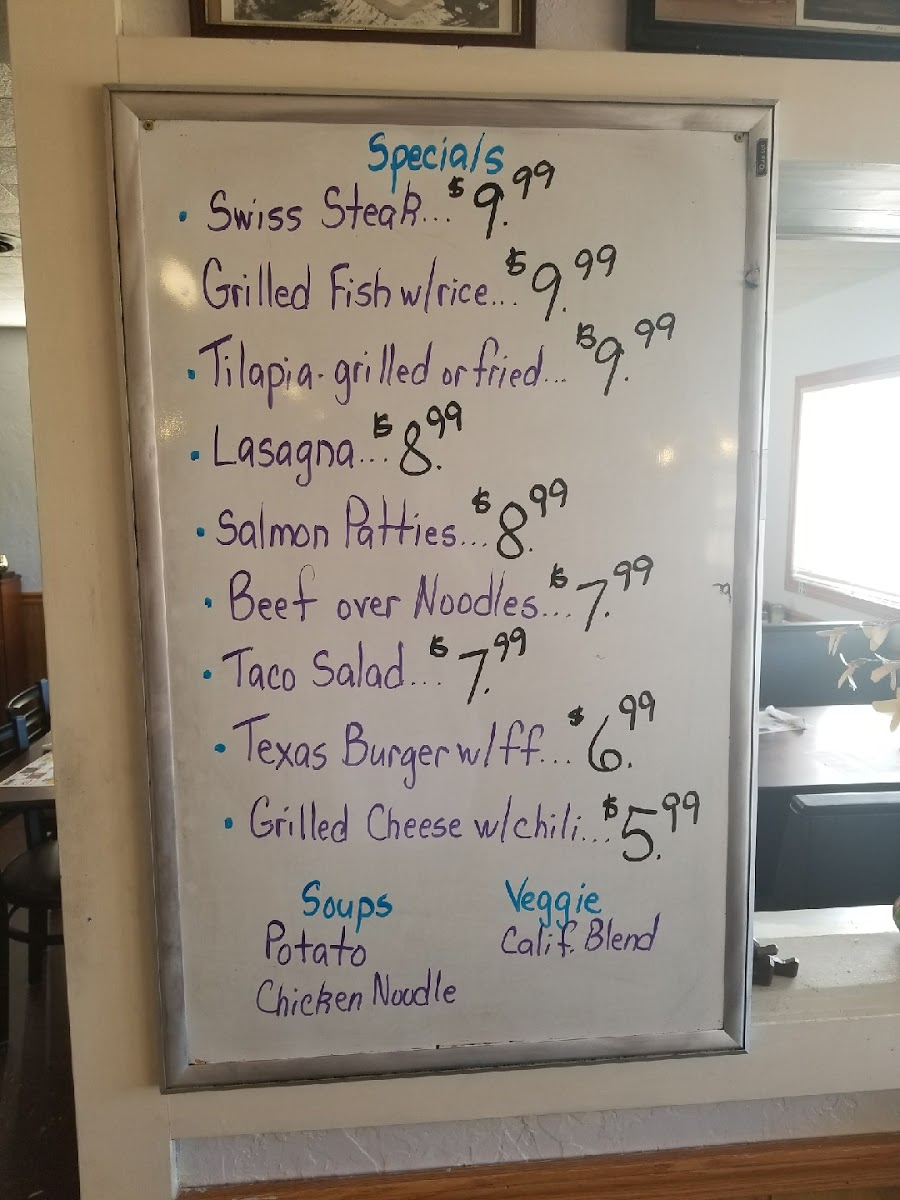 Specials
• Swiss Steak... $9.99
Grilled Fish w/rice... $9.99
• Tilapia- grilled or fried... $9.99
• Lasagna... $8.99
• Salmon Patties... $8.99
• Beef over Noodles... $7.99
• Taco Salad... $7.99
• Texas Burger w/ff... $6.99
• Grilled Cheese w/chili... $5.99
Soups
Potato
Chicken Noodle
Veggie
Calif. Blend